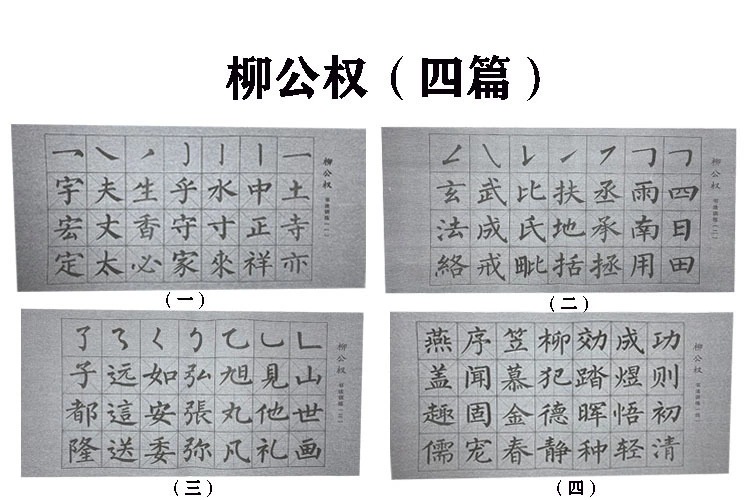 柳公权（四篇）
柳公权
一 丶 ノ 亅 丨 丨 一
宇 夫 生 乎 水 中 土
宏 丈 香 守 寸 正 寺
定 太 必 家 來 祥 亦
（一）
柳公权
玄 武 比 扶 丞 雨 四
法 成 氏 地 承 南 日
絡 戒 毗 括 拯 用 田
（二）
柳公权
子 远 如 弘 旭 見 山
都 這 安 張 丸 他 世
隆 送 委 弥 凡 礼 画
（三）
柳公权
燕 序 笠 柳 効 成 功
盖 闻 慕 犯 踏 煜 则
趣 固 金 德 晖 悟 初
儒 宠 春 静 种 轻 清
（四）